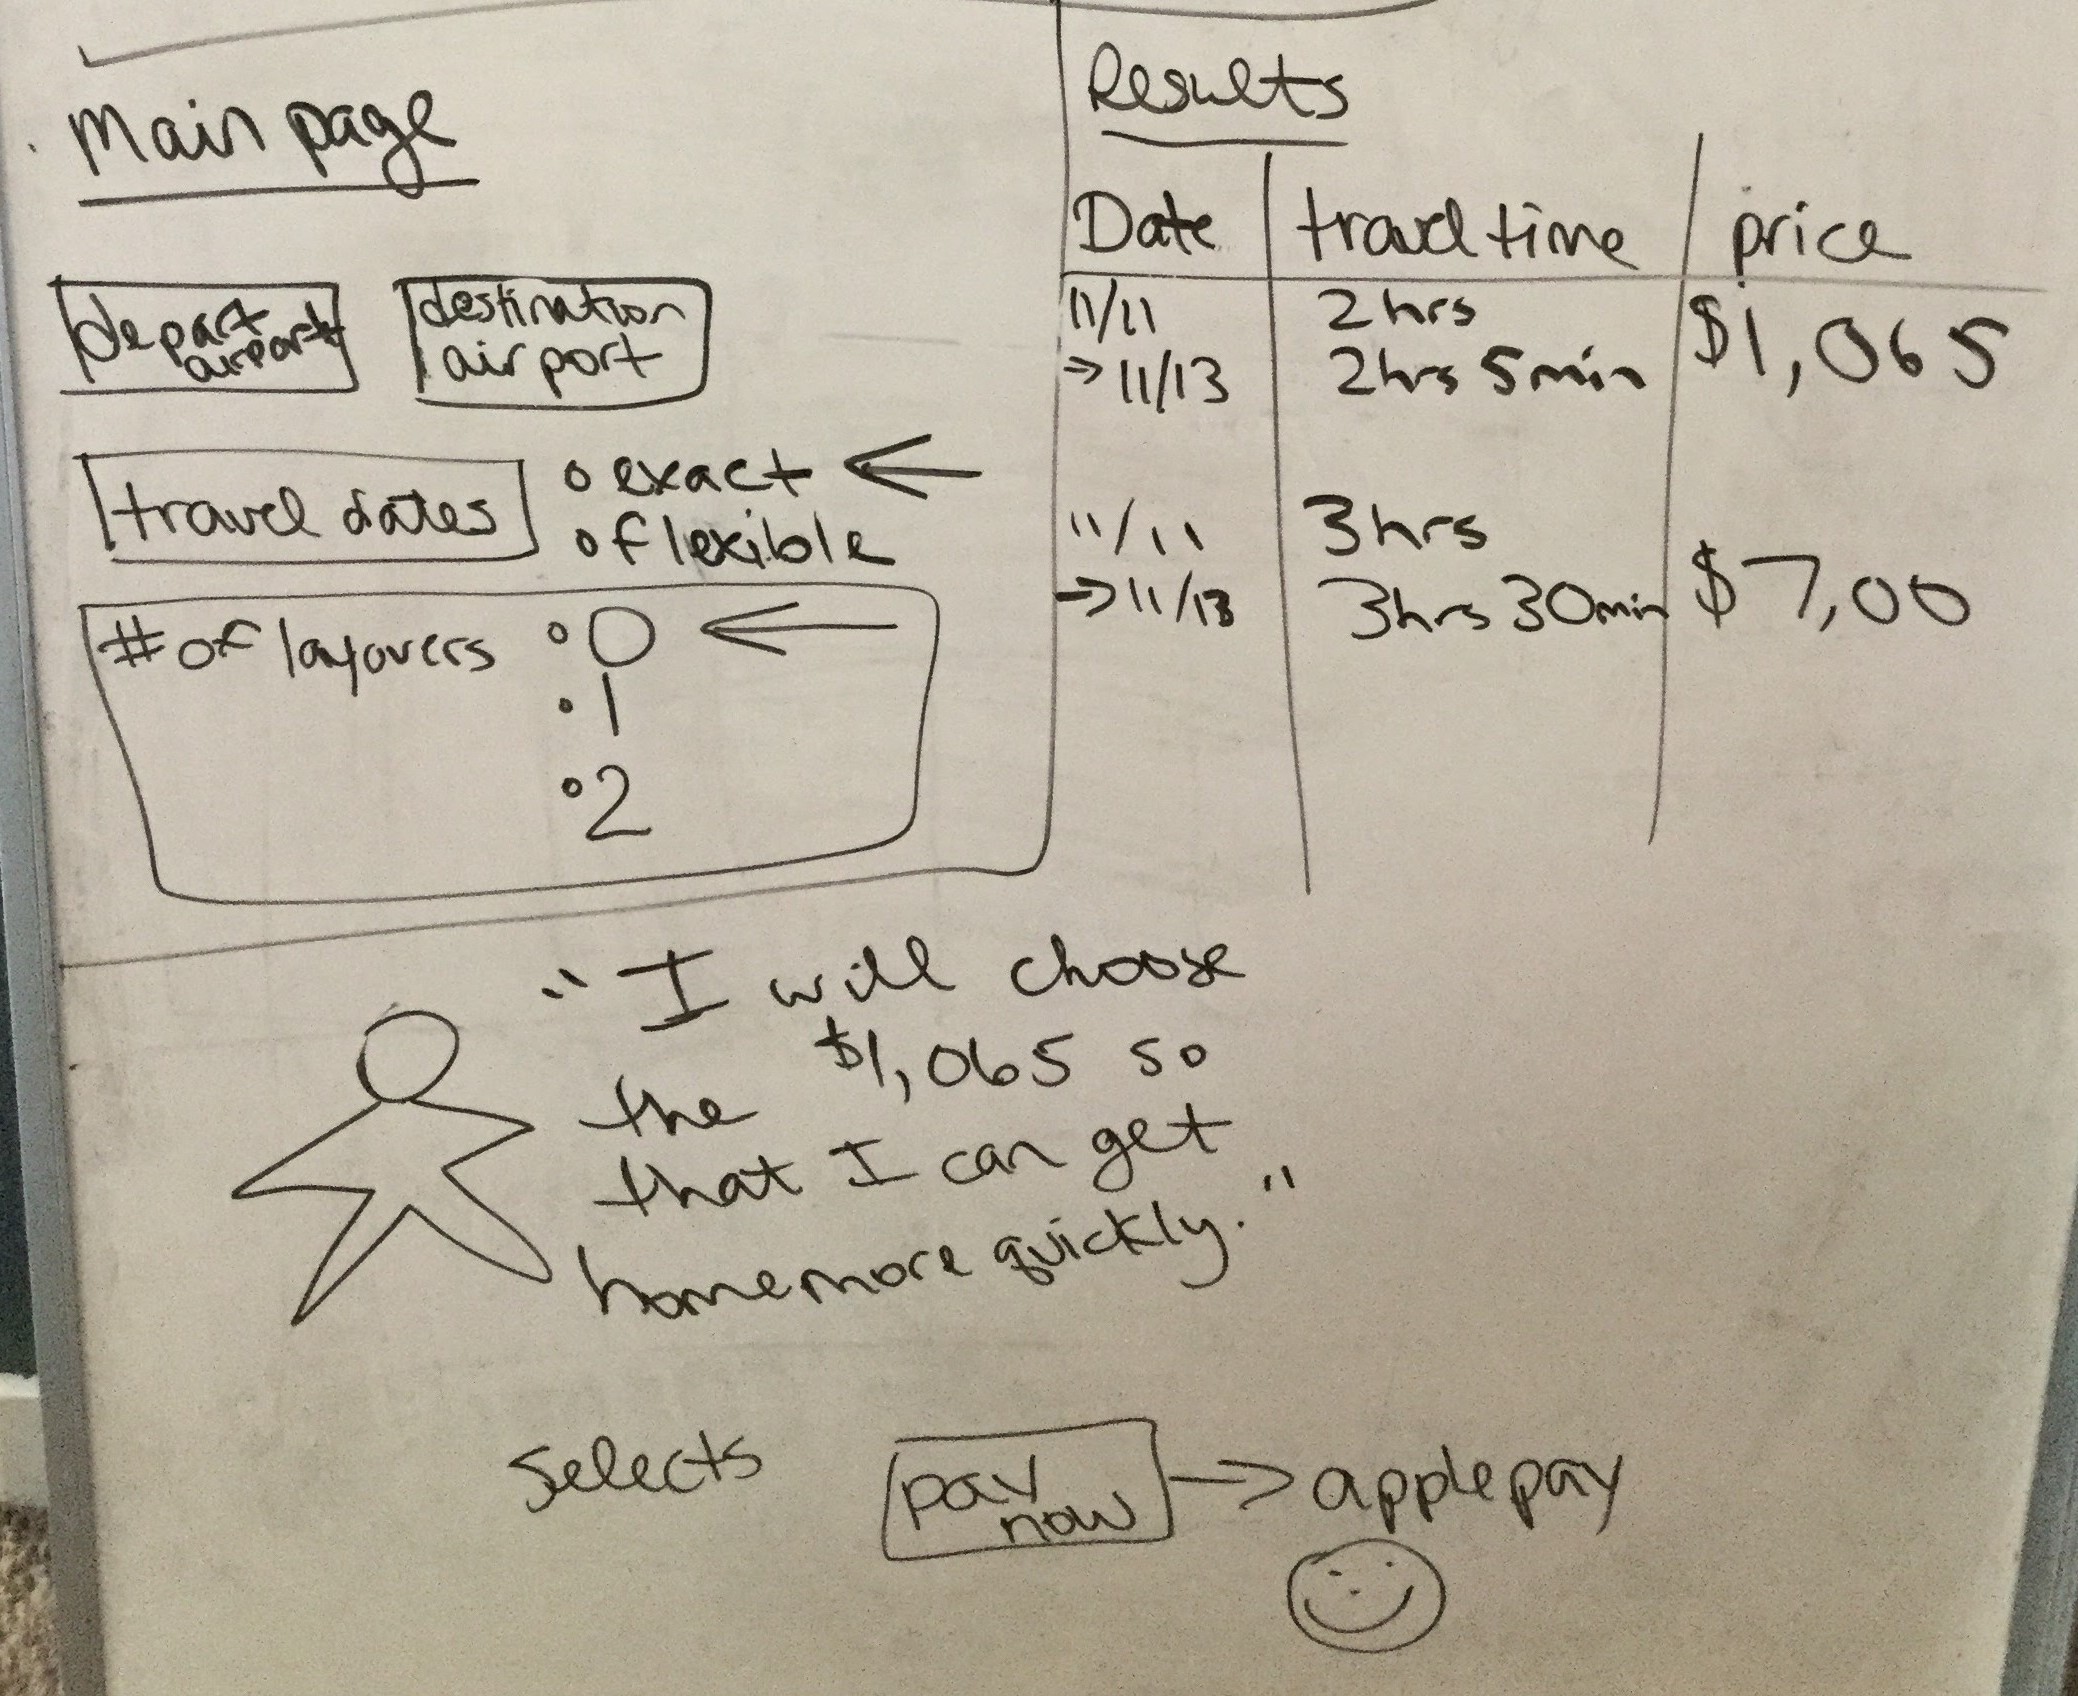 Main page
depart
airport
destination
airport
travel dates
exact
flexible
# of layovers
0
1
2
Results
Date travel time price
11/11 2hrs $1,065
→ 11/13 2hrs 5min
11/11 3hrs
→ 11/13 3hrs 30min $7,00
"I will choose
the $1,065 so
that I can get
home more quickly."
Selects
pay
now
→ apple pay